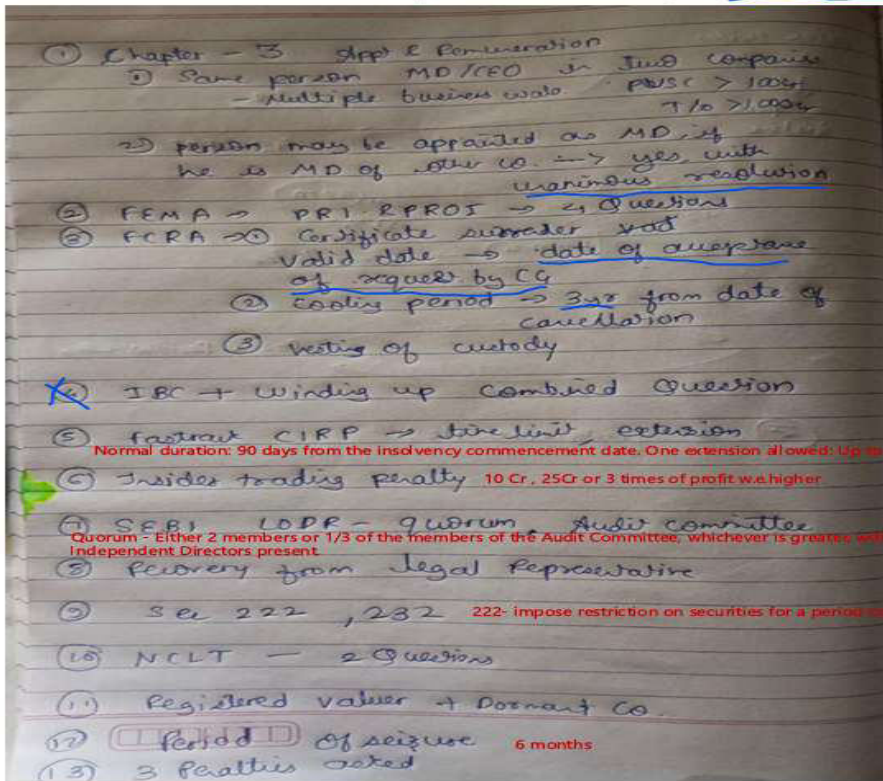 ① Chapter - 3 Appt & Remuneration
① Same person MD/CEO in two companies
- Multiple business PUSC > 100cr
T/o > 1000cr
2) person may be appointed as MD, if
he is MD of other co. --> yes, with
unanimous resolution
② FEMA → → 4 Questions
③ FCRA → ① Certificate surrender
valid date → date of acceptance
of request by CG
② Cooling period → 3yr from date of
cancellation
③ Vesting of custody
IBC + Winding up Combined Question
⑤ Fastrack CIRP → time limit, extension
Normal duration: 90 days from the insolvency commencement date. One extension allowed: Up to
⑥ Insider trading penalty 10 Cr, 25Cr or 3 times of profit w.e.higher
⑦ SEBI LODR - quorum, Audit committee
Quorum - Either 2 members or 1/3 of the members of the Audit Committee, whichever is greater,
Independent Directors present
⑧ Recovery from legal Representative
⑨ Sec 222, 232 222- impose restriction on securities for a period
⑩ NCLT - 2 Questions
⑪ Registered valuer + Dormant Co.
⑫ Period of seizure 6 months
⑬ 3 Penalties asked